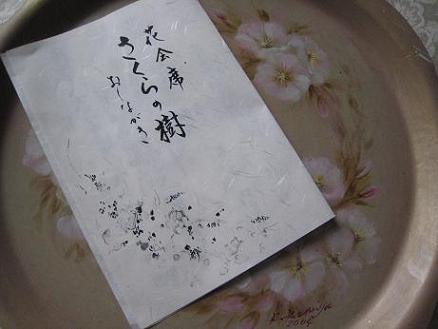 花会席
さくらの樹
おしながき
2004